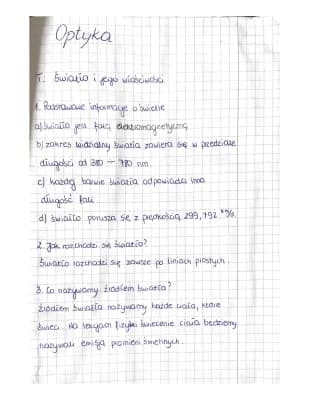 Optyka
T: Światło i jego właściwości
1. Podstawowe informacje o świetle
a) światło jest falą elektromagnetyczną
b) zakres widzialny światła zawiera się w przedziale
długości od 380 - 780 nm.
c) każdej barwie światła odpowiada inna
długość fali
d) światło porusza się z prędkością 299,792 km/s.
2. Jak rozchodzi się światło?
Światło rozchodzi się zawsze po liniach prostych.
3. Co nazywamy źródłem światła?
źródłem światła nazywamy każde ciało, które
świeci. Na lekcjach fizyki świecenie ciała będziemy
nazywali emisją promieni świetlnych.